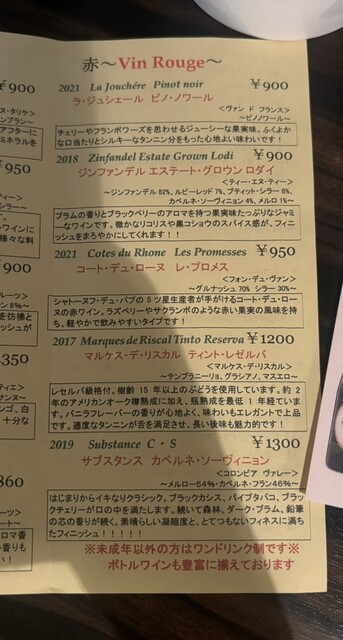 赤〜Vin Rouge〜
2021 La Jouchére Pinot noir ¥900
ラ・ジュシェール ピノ・ノワール
<ヴァン ド フランス>
〜ピノノワール〜
チェリーやフランボワーズを思わせるジューシーな果実味。ふくよか
な口当たりとシルキーなタンニン分をもった心地よい味わいです！
2018 Zinfandel Estate Grown Lodi ¥900
ジンファンデル エステート・グロウン ロダイ
<ティー・エヌ・ティー>
〜ジンファンデル 82%、ルビーレッド 7%、プティット・シラー 6%、
カベルネ・ソーヴィニヨン 4%、メルロ 1%〜
プラムの香りとブラックベリーのアロマを持つ果実味たっぷりなジャミ
ーなワインです。微かなリコリスや黒コショウのスパイス感が、フィニ
ッシュをまろやかにしてくれます！！
2021 Cotes du Rhone Les Promesses ¥950
コート・デュ・ローヌ レ・プロメス
<フォン・デュ・ヴァン>
〜グルナッシュ 70% シラー 30%〜
シャトーヌフ・デュ・パプの 5 ツ星生産者が手がけるコート・デュ・ロー
ヌの赤ワイン。ラズベリーやサクランボのような赤い果実の風味を持
ち、軽やかで飲みやすいタイプです！
2017 Marques de Riscal Tinto Reserva ¥1200
マルケス・デ・リスカル ティント・レゼルバ
<マルケス・デ・リスカル>
〜テンプラニーリョ、グラシアノ、マスエロ〜
レセルバ級格付。樹齢 15 年以上のぶどうを使用しています。約 2
年のアメリカンオーク樽熟成に加え、瓶熟成を最低 1 年経ていま
す。バニラフレーバーの香りが心地よく、味わいもエレガントで上品
です。適度なタンニンが舌を満足させ、長い後味も魅力的です！
2019 Substance C・S ¥1300
サブスタンス カベルネ・ソーヴィニョン
<コロンビア ヴァレー>
〜メルロー54%・カベルネ・フラン46%〜
はじまりからイキなりクラシック。ブラックカシス、パイプタバコ、ブラッ
クチェリーが口の中を満たします。続いて森林、ダーク・プラム、鉛筆
の芯の香りが続く。素晴らしい凝縮度と、とてつもないフィネスに満ち
たフィニッシュ！！！！！
※未成年以外の方はワンドリンク制です※
ボトルワインも豊富に揃えております